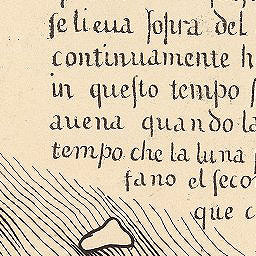 ſe lieua ſopra del
continuamente h
in queſto tempo ſ
auena quando la
tempo che la luna
fano el ſeco
que c